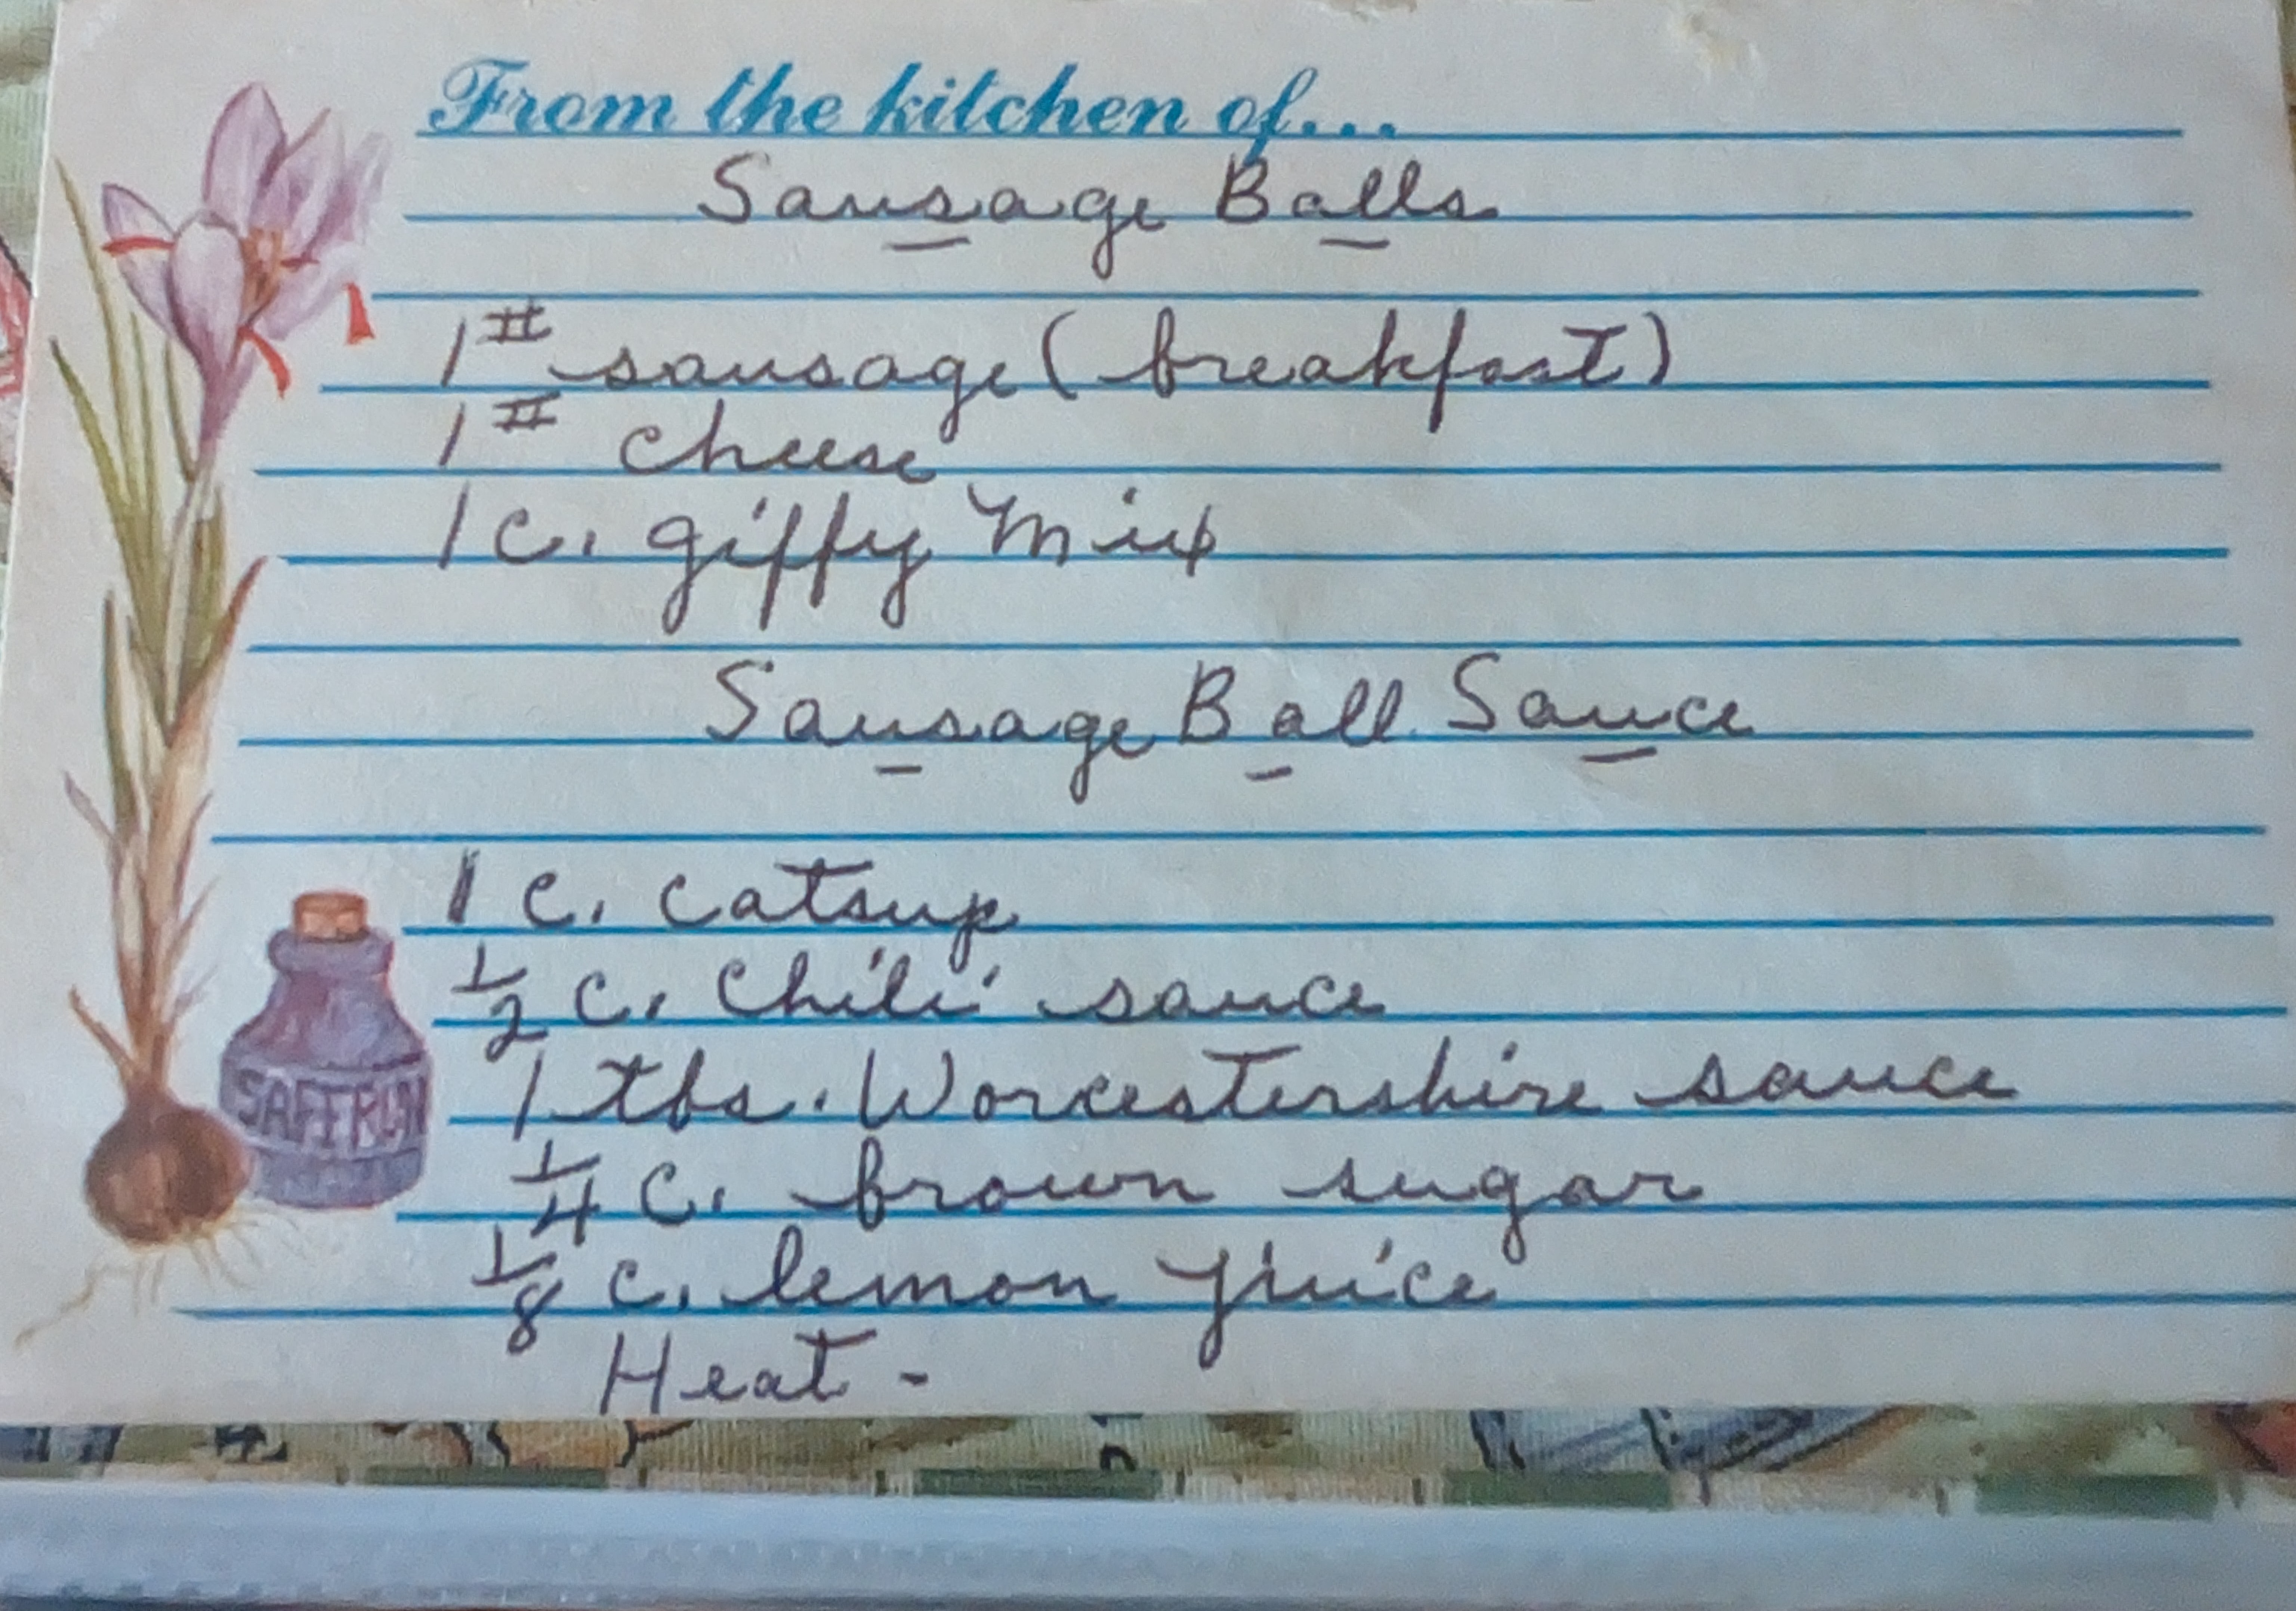 From the kitchen of...
Sausage Balls
1# sausage (breakfast)
1# cheese
1 c. giffy Mix
Sausage Ball Sauce
1 c. catsup
1/2 c. chili sauce
1 tbs. Worcestershire sauce
1/4 c. brown sugar
1/8 c. lemon juice
Heat -
SAFFRON